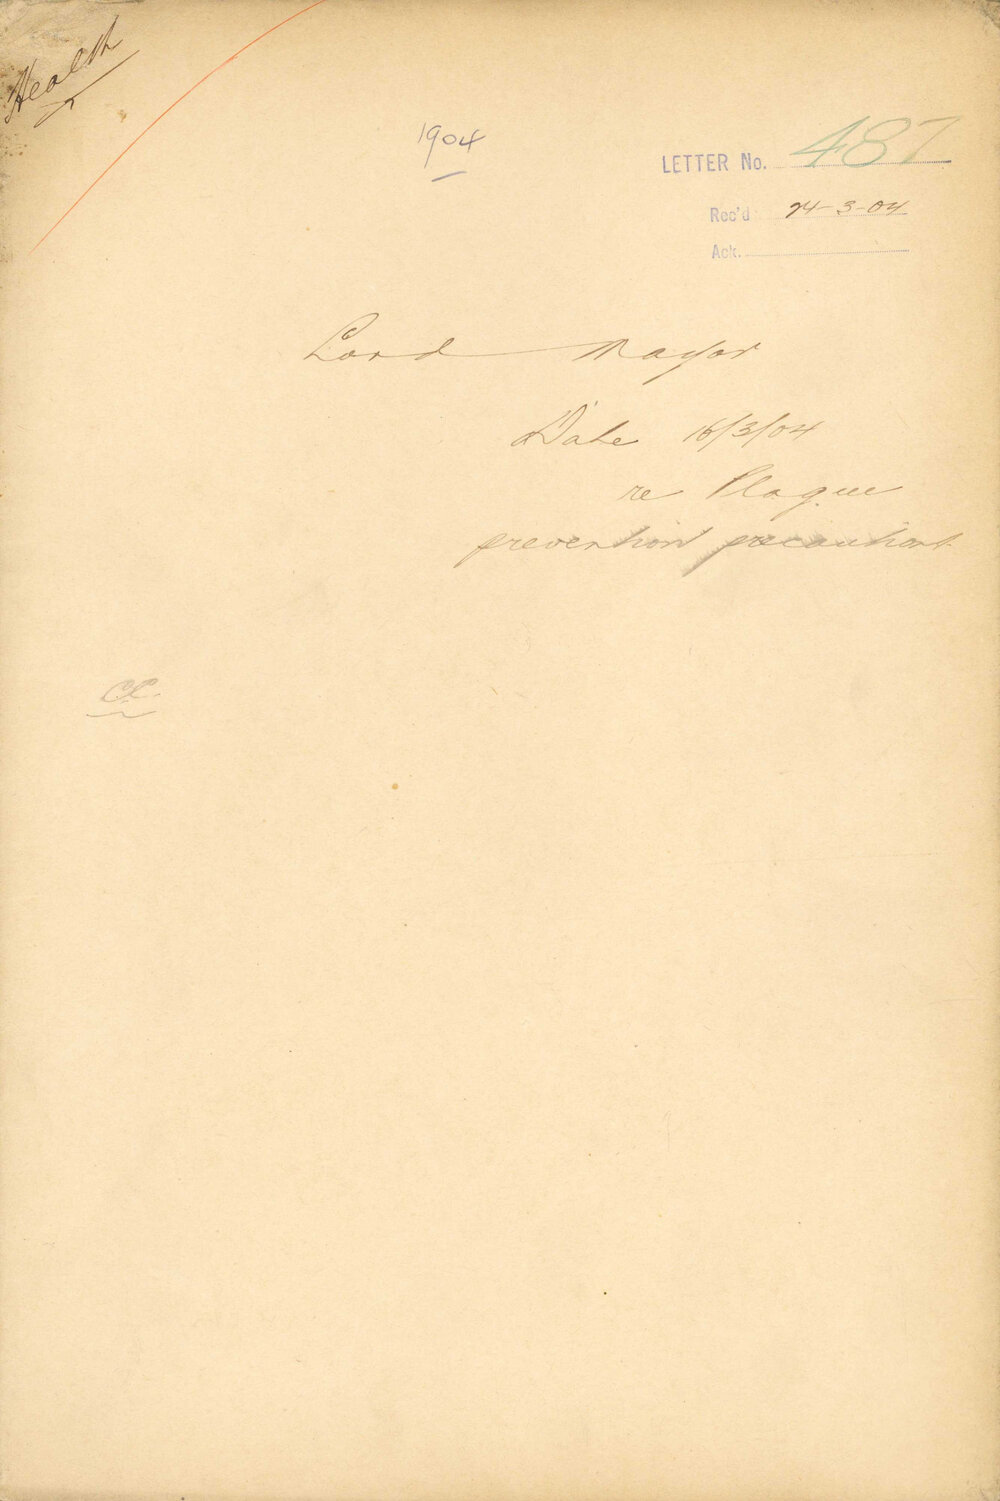 Health
1904
LETTER No. 487
Rec'd 24-3-04
Ack.
Lord Mayor
Date 16/3/04
re Plague
prevention precautions